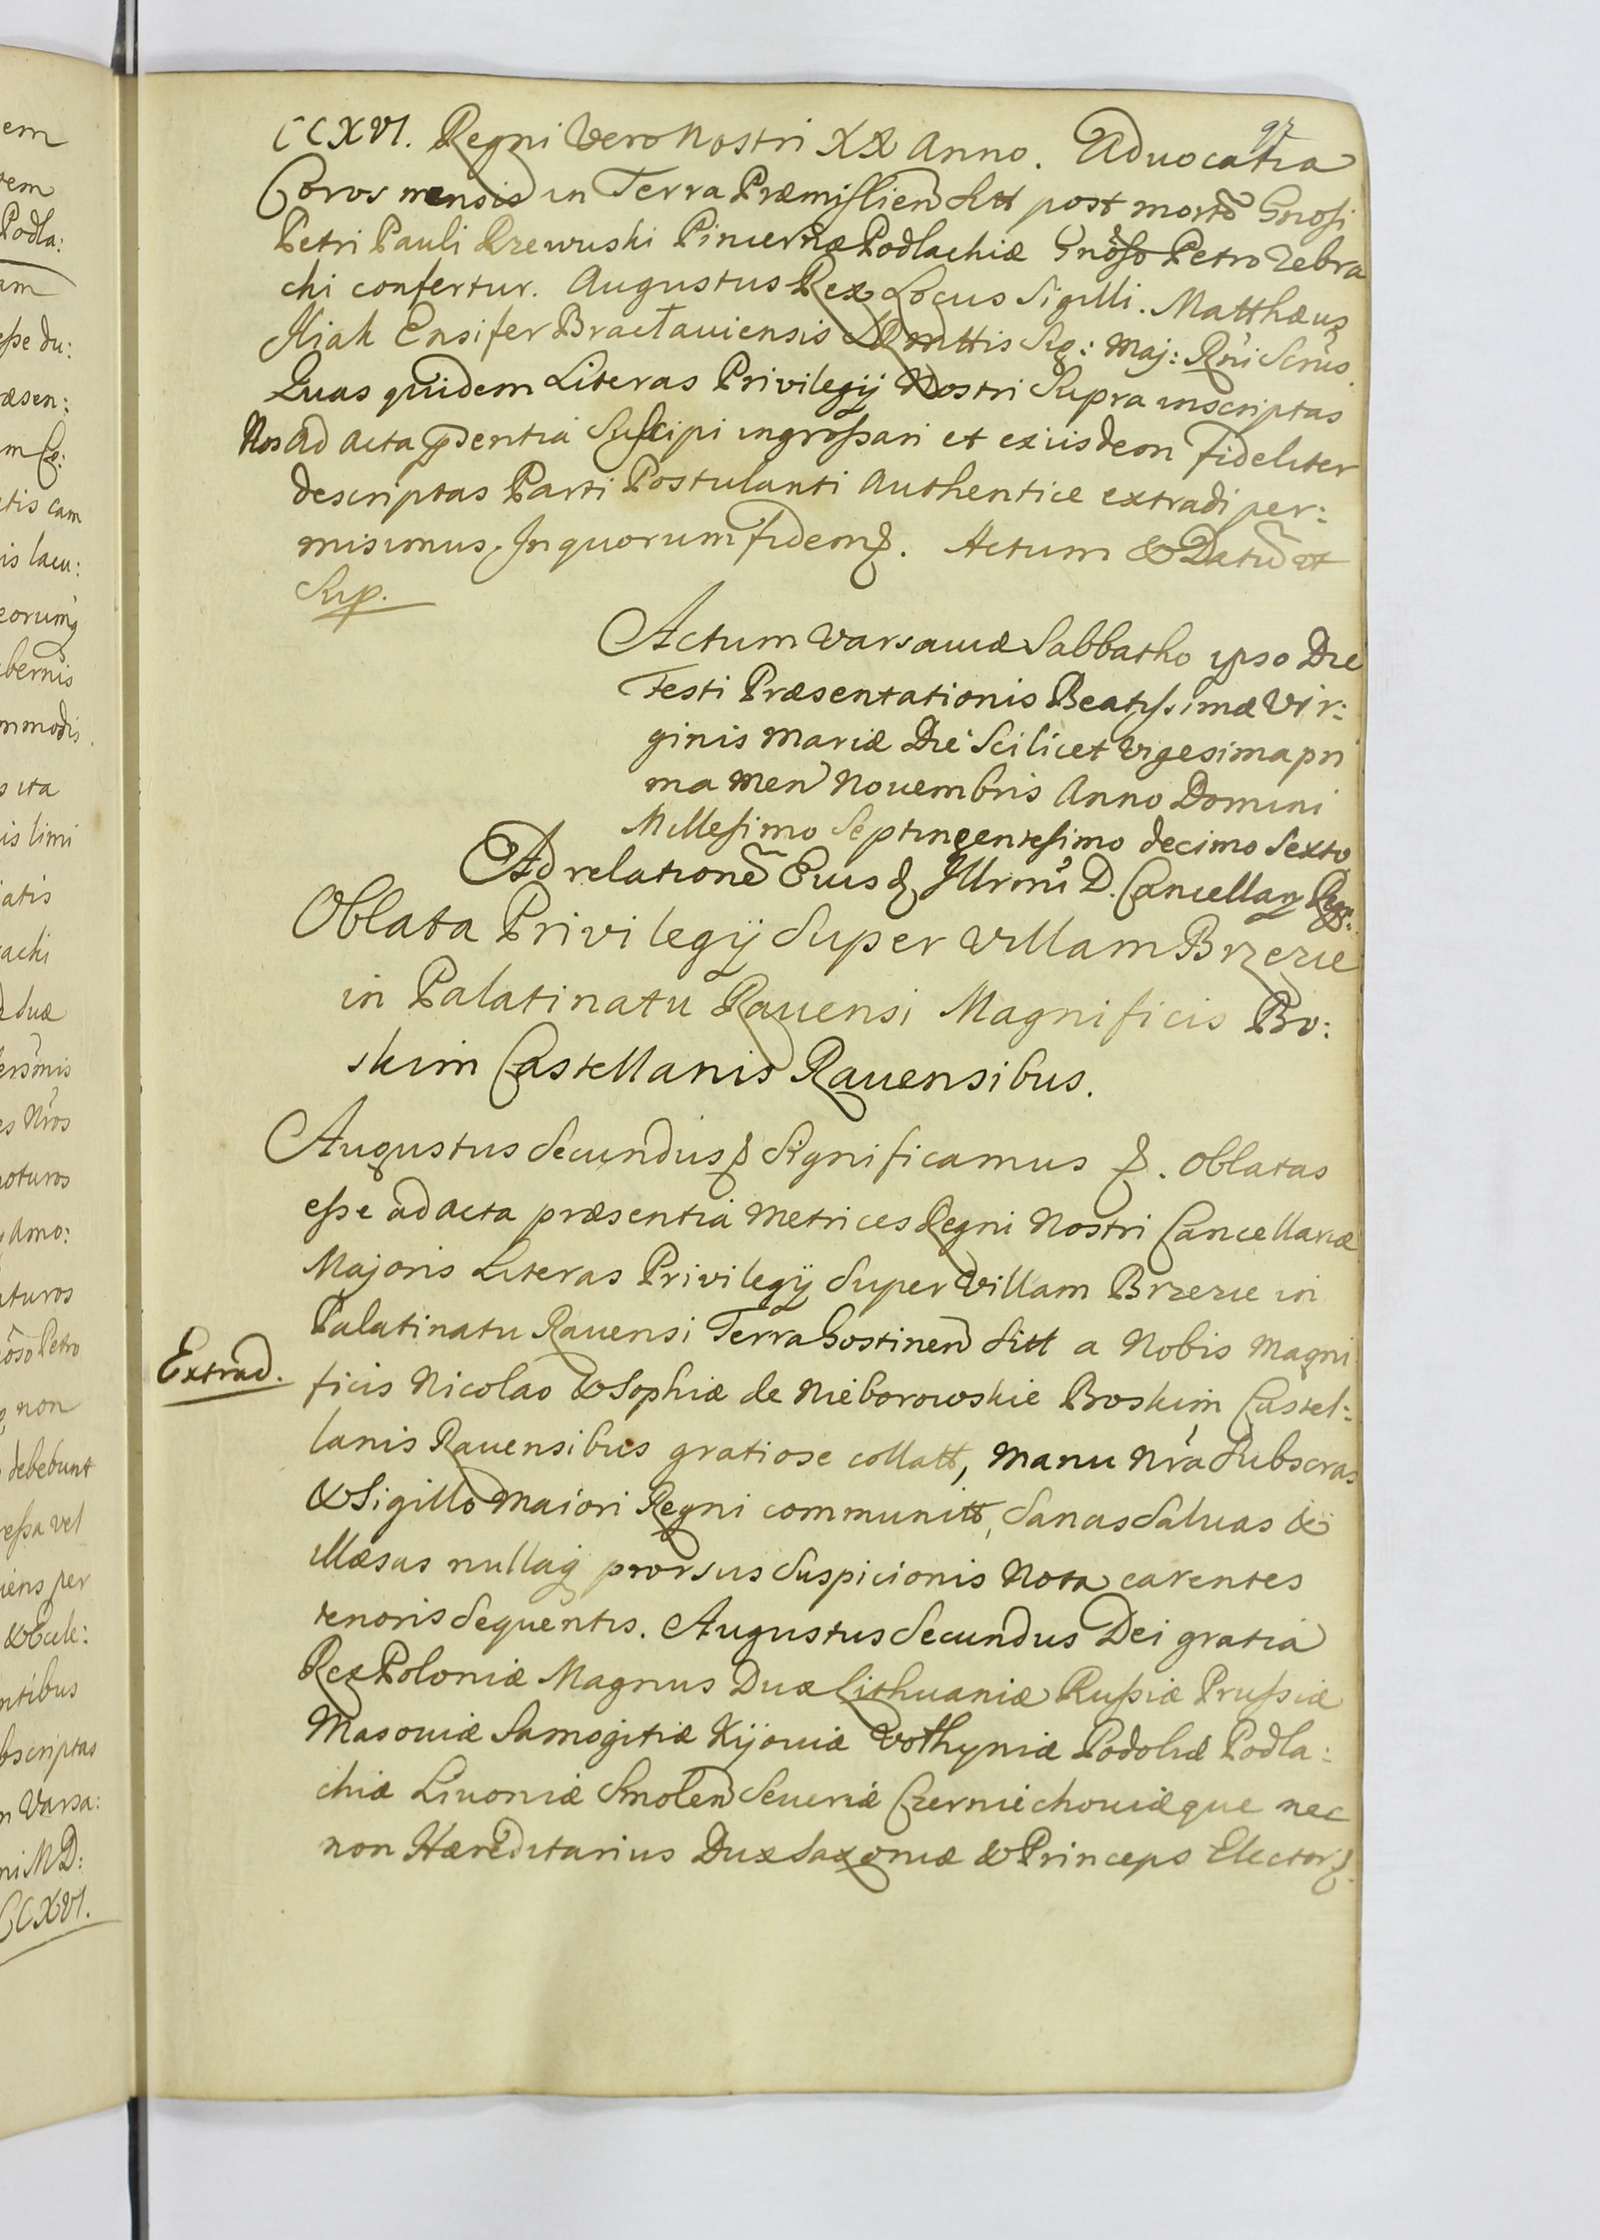 97
CCXVI. Regni Vero Nostri XX Anno. Advocatia
Coros mensis in Terra Præmislien Sitt post mortē Gnosi
Petri Pauli Rzewuski Pincernæ Podlachiæ Gnōso Petro Zebra
chi confertur. Augustus Rex Locus Sigilli. Matthæus
Iliak Ensifer Braclauiensis Sig: Maj: Rni Scrius
Quas quidem Literas Privilegij Nostri Supra inscriptas
Nos ad acta pdentia Suscipi ingrossari et exiisdem fideliter
descriptas Parti Postulanti Authentice extradi per:
misimus. In quorum fidem &. Actum & Datū ut
Sup.
Actum Varsaviæ Sabbatho ipso Die
Festi Præsentationis Beatissimæ Vir:
ginis Mariæ Die Scilicet Vigesima pri
ma Men Novembris Anno Domini
Millesimo Septingentesimo decimo Sexto
Ad relationē Eius & Illrmi D. Cancellarij Regn:
Oblata Privilegij Super Villam Brzezie
in Palatinatu Rauensi Magnificis Bo:
skim Castellanis Rauensibus.
Augustus Secundus & Significamus &. Oblatas
esse ad acta præsentia Metrices Regni Nostri Cancellariæ
Majoris Literas Privilegij Super Villam Brzezie in
Palatinatu Rauensi Terra Gostinen Sitt a Nobis Magni
Extrad.
ficis Nicolao & Sophiæ de Nieborowskie Boskim Castel:
lanis Rauensibus gratiose collatt, Manu Nra Subscras
& Sigillo Maiori Regni communitt, Sanas Saluas &
illæsas nullaq prorsus Suspicionis Nota carentes
tenoris Sequentis. Augustus Secundus Dei gratia
Rex Poloniæ Magnus Dux Lithuaniæ Russiæ Prussiæ
Masouiæ Samogitiæ Kijouiæ Volhyniæ Podoliæ Podla:
chiæ Liuoniæ Smolen Seueriæ Czerniechouiæque nec
non Hæreditarius Dux Saxoniæ & Princeps Elector &.